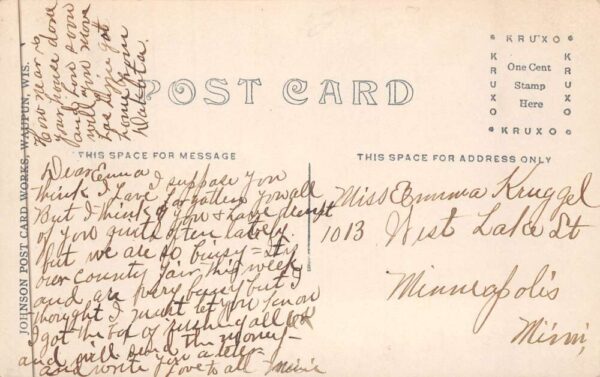 How near is
your house done
and how soon
will you move
has Lizzie got
home from
Dakota.
JOHNSON POST CARD WORKS, WAUPUN, WIS.
POST CARD
KRUXO
KRUXO
One Cent
Stamp
Here
KRUXO
KRUXO
THIS SPACE FOR MESSAGE
THIS SPACE FOR ADDRESS ONLY
Dear Emma I suppose you
think I have forgotten you all
But I think of you & have dreampt
of you quite often lately
but we are so buisy = Its
our county fair this week
and am very buisy but I
thought I must let you know
I got the box of all OK
and will send the money =
and write you a letter =
Love to all Minnie
Miss Emma Kruggel
1013 West Lake St
Minneapolis
Minn,